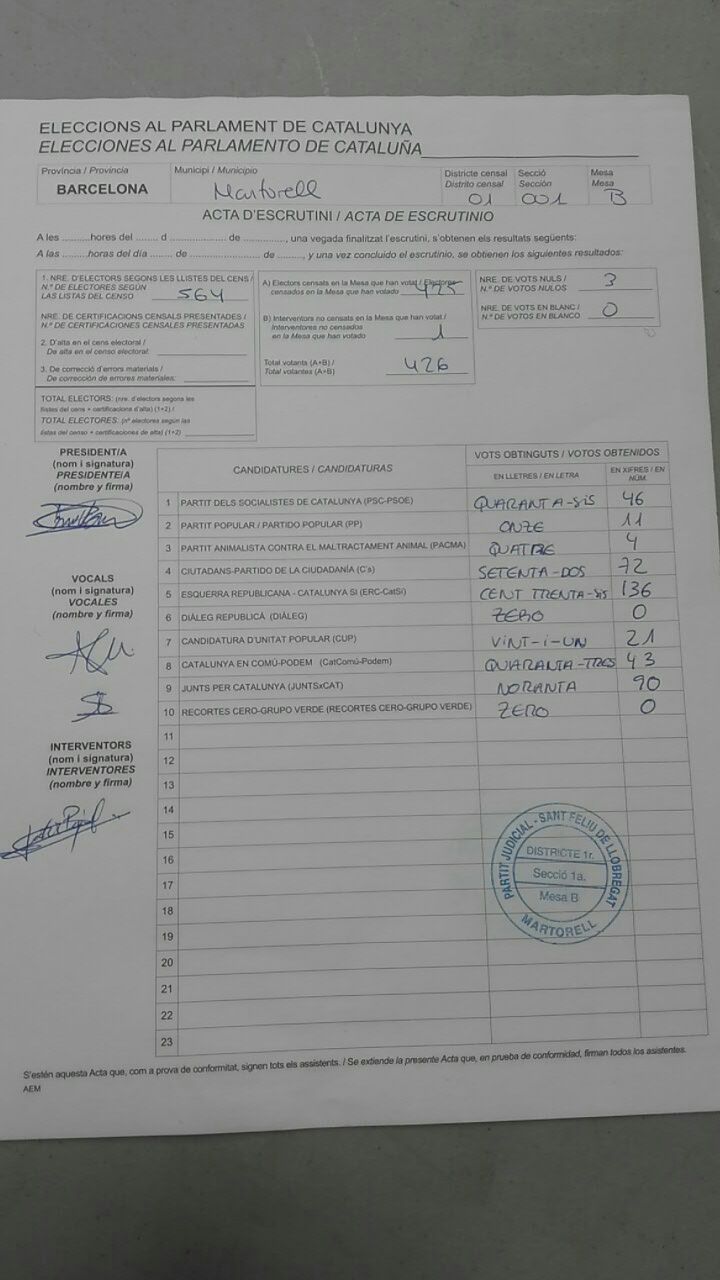 ELECCIONS AL PARLAMENT DE CATALUNYA
ELECCIONES AL PARLAMENTO DE CATALUÑA
Província / Provincia
BARCELONA
Municipi / Municipio
Martorell
Districte censal
Distrito censal
01
Secció
Sección
001
Mesa
Mesa
B
ACTA D'ESCRUTINI / ACTA DE ESCRUTINIO
A les ..........hores del ....... d .................. de .............., una vegada finalitzat l'escrutini, s'obtenen els resultats següents:
A las ..........horas del día ....... de .................. de .............., y una vez concluido el escrutinio, se obtienen los siguientes resultados:
1. NRE. D'ELECTORS SEGONS LES LLISTES DEL CENS /
N.º DE ELECTORES SEGÚN
LAS LISTAS DEL CENSO 564
NRE. DE CERTIFICACIONS CENSALS PRESENTADES /
N.º DE CERTIFICACIONES CENSALES PRESENTADAS
2. D'alta en el cens electoral /
De alta en el censo electoral:
3. De correcció d'errors materials /
De corrección de errores materiales:
TOTAL ELECTORS: (nre. d'electors segons les
llistes del cens + certificacions d'alta) (1+2) /
TOTAL ELECTORES: (nº electores según las
listas del censo + certificaciones de alta) (1+2)
A) Electors censats en la Mesa que han votat / Electores
censados en la Mesa que han votado 425
B) Interventors no censats en la Mesa que han votat /
Interventores no censados
en la Mesa que han votado 1
Total votants (A+B) /
Total votantes (A+B) 426
NRE. DE VOTS NULS /
N.º DE VOTOS NULOS 3
NRE. DE VOTS EN BLANC /
N.º DE VOTOS EN BLANCO 0
PRESIDENT/A
(nom i signatura)
PRESIDENTE/A
(nombre y firma)
VOCALS
(nom i signatura)
VOCALES
(nombre y firma)
INTERVENTORS
(nom i signatura)
INTERVENTORES
(nombre y firma)
CANDIDATURES / CANDIDATURAS
VOTS OBTINGUTS / VOTOS OBTENIDOS
EN LLETRES / EN LETRA
EN XIFRES / EN NÚM.
1 PARTIT DELS SOCIALISTES DE CATALUNYA (PSC-PSOE) QUARANTA-SIS 46
2 PARTIT POPULAR / PARTIDO POPULAR (PP) ONZE 11
3 PARTIT ANIMALISTA CONTRA EL MALTRACTAMENT ANIMAL (PACMA) QUATRE 4
4 CIUTADANS-PARTIDO DE LA CIUDADANÍA (C's) SETENTA-DOS 72
5 ESQUERRA REPUBLICANA - CATALUNYA SÍ (ERC-CatSí) CENT TRENTA-SIS 136
6 DIÀLEG REPUBLICÀ (DIÀLEG) ZERO 0
7 CANDIDATURA D'UNITAT POPULAR (CUP) VINT-I-UN 21
8 CATALUNYA EN COMÚ-PODEM (CatComú-Podem) QUARANTA-TRES 43
9 JUNTS PER CATALUNYA (JUNTSxCAT) NORANTA 90
10 RECORTES CERO-GRUPO VERDE (RECORTES CERO-GRUPO VERDE) ZERO 0
11
12
13
14
15
16
17
18
19
20
21
22
23
PARTIT JUDICIAL - SANT FELIU DE LLOBREGAT
DISTRICTE 1r.
Secció 1a.
Mesa B
MARTORELL
S'estén aquesta Acta que, com a prova de conformitat, signen tots els assistents. / Se extiende la presente Acta que, en prueba de conformidad, firman todos los asistentes.
AEM